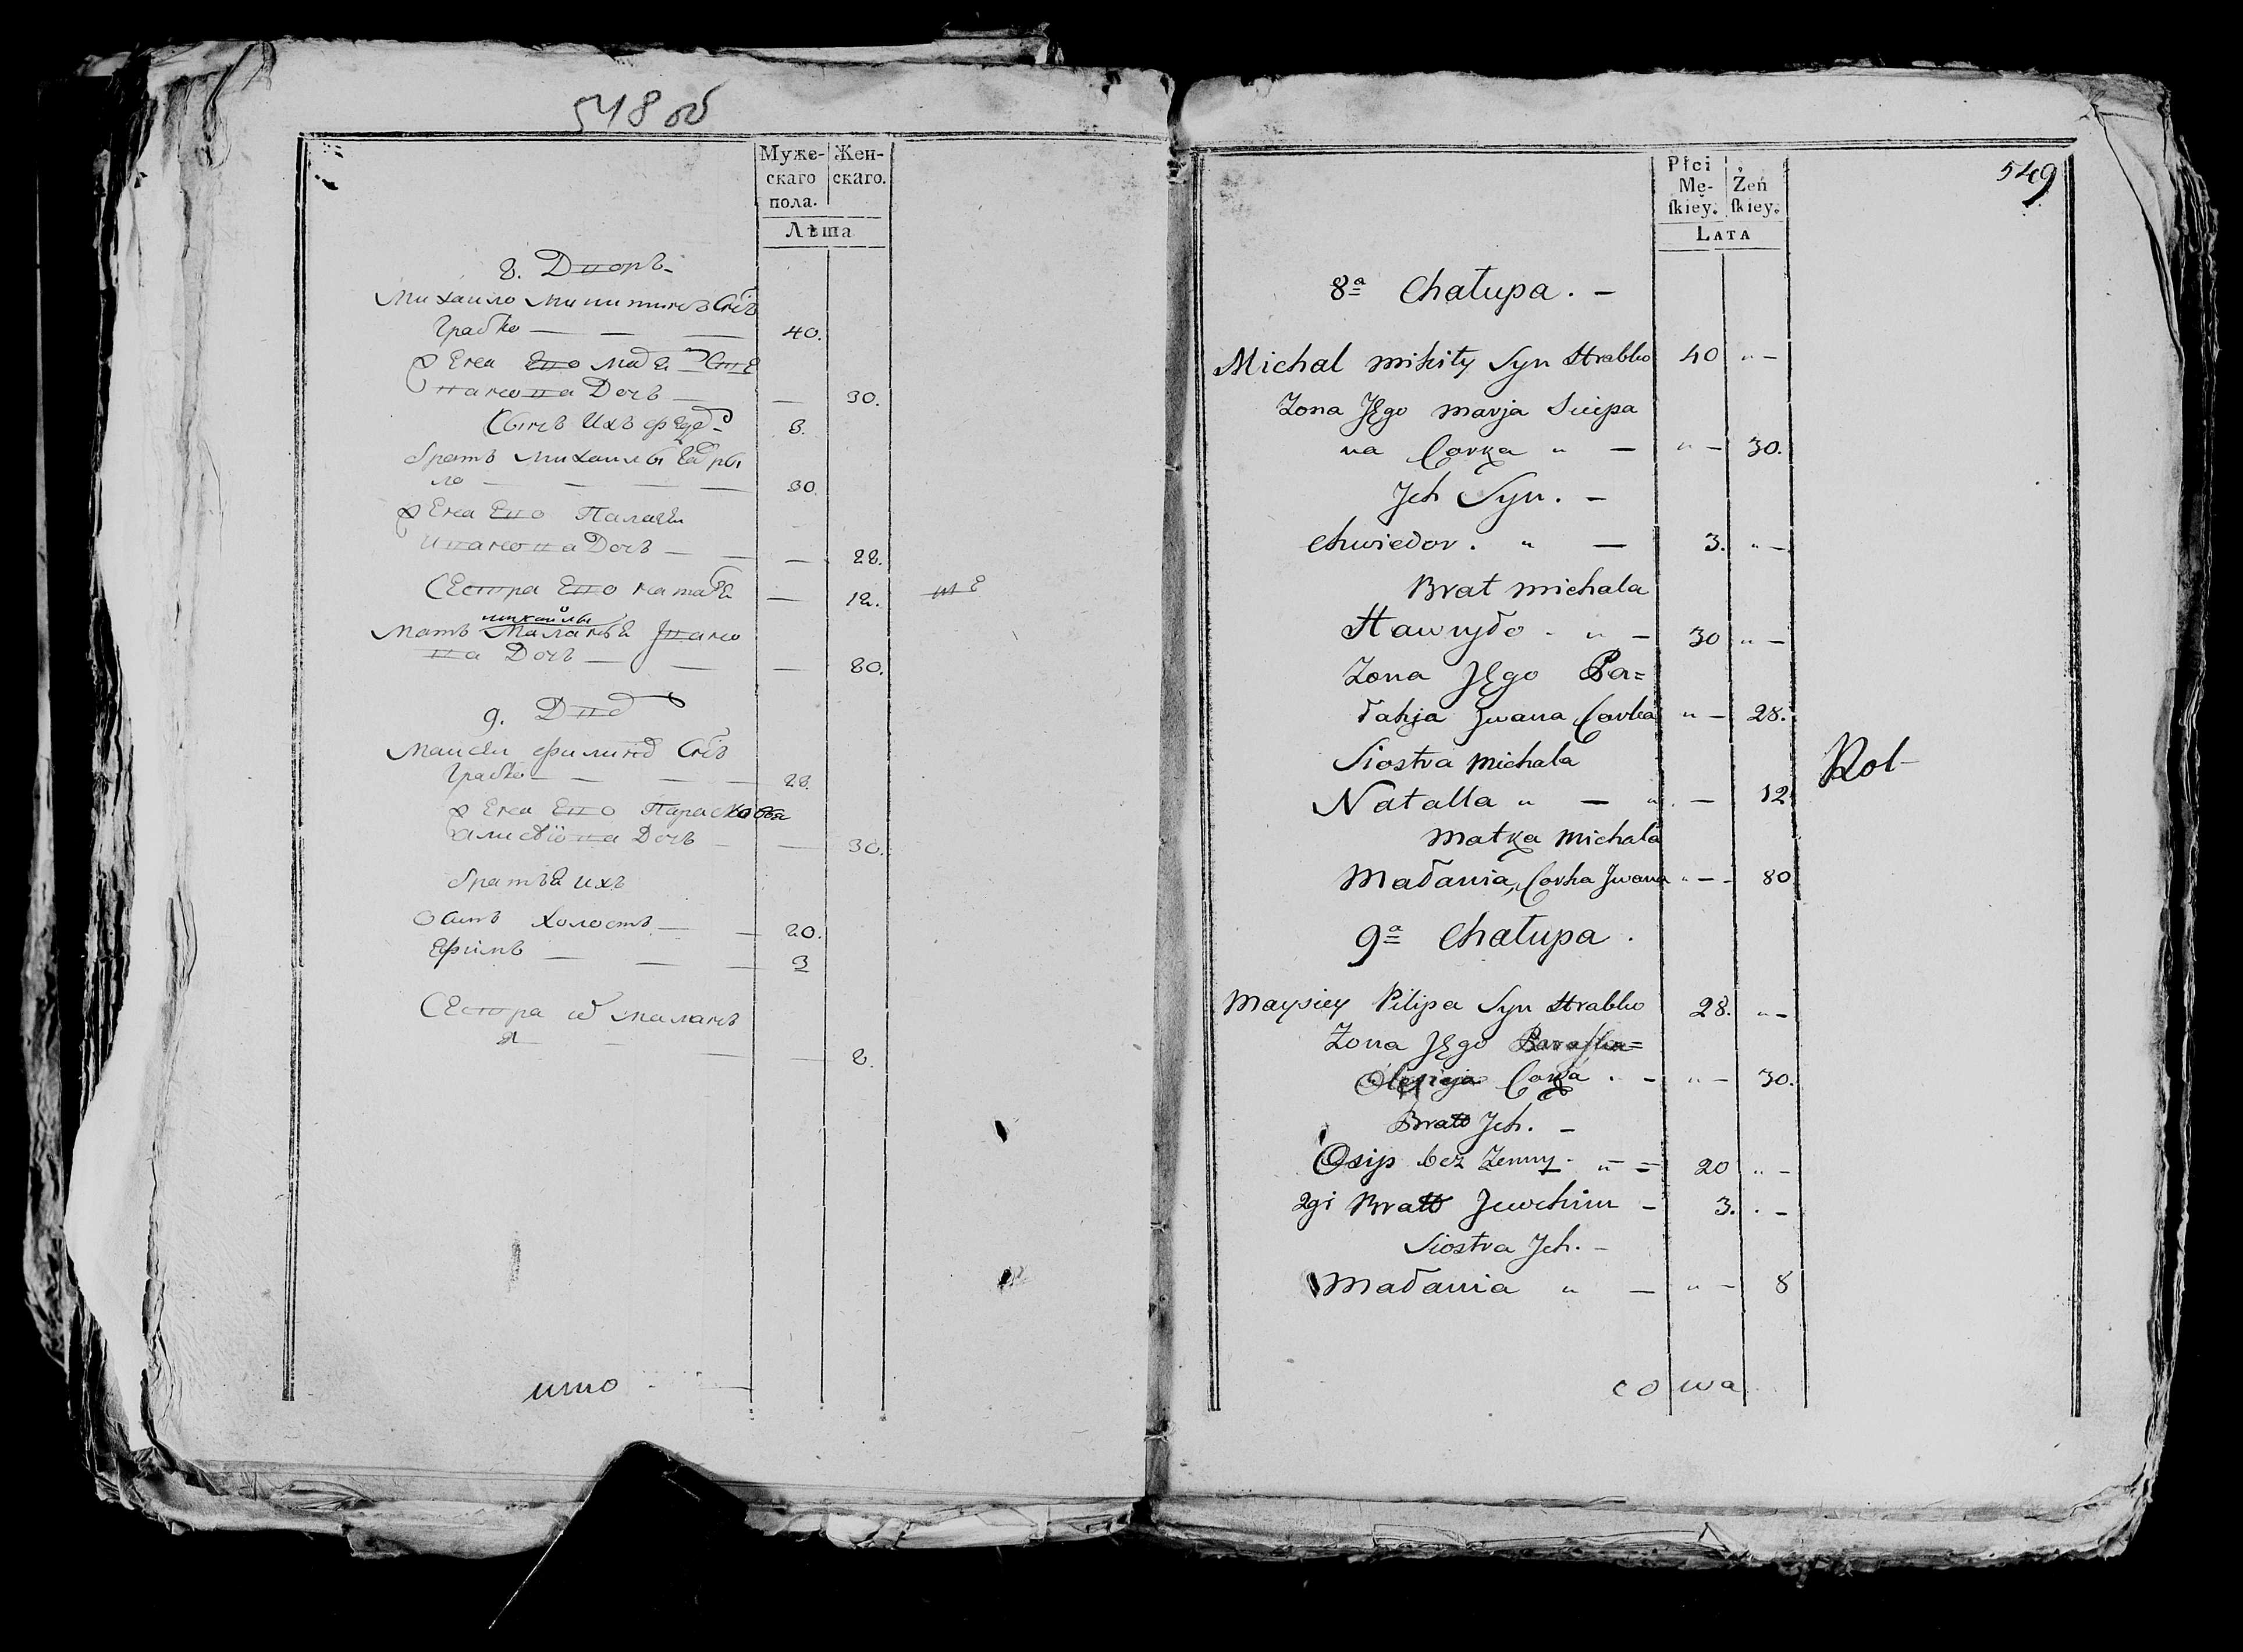 548 об
Муже-
скаго
пола.
Жен-
скаго.
Лѣта
8. Дворъ
Михайло Микитинъ Снъ
Грабко — — — 40.
Жена Его Маря
Иванова Дочь — — 30.
Сынъ Ихъ Федо 3.
братъ Михайлы Гаври
ло — — — — 30.
Жена Его Палагея
Иванова Дочь — — — 28.
Сестра Его Наталя — 12.
михайлы
Мать Маланья Ивано
ва Дочь — — — 80.
9. Дво
Майсей Филипо Снъ
Грабко — — — 28.
Жена Его Параско
Дочь — — 30.
братья ихъ
Осипъ холостъ — — 20.
Ефимъ — — — 3
Сестра Маланъ
я — — — 8.
што
549
Płci
Mę-
ſkiey.
Żeń
ſkiey.
LATA
8ª Chałupa. —
Michal mikity Syn Hrabko 40 " —
Zona JĘgo marja
na Corka " — " — 30.
Jch Syn. —
Chwiedor. " — 3. " —
Brat michala
Hawryło - " — 30 " —
Zona JĘgo Pa=
łahja Jwana Corka " — 28.
Siostra michala
Natalla " — " . — 12
Matka Michala
Małania, Corka Jwana " — - 80
Rol
9ª Chałupa.
Maysiey Pilipa Syn Hrabko 28. " —
Zona JĘgo Paraska=
Corka . - " — 30.
Brat Jch. —
Osip bez Zenny - " = 20 " —
2gi Brat Jewchim — 3. . —
Siostra Jch. —
Małania " — " — 8
cowa